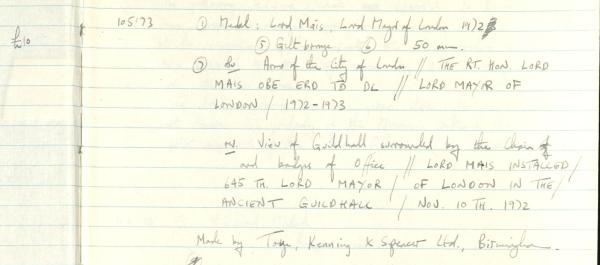 105/73 ① Medal: Lord Mais, Lord Mayor of London 1972
⑤ Gilt bronze ⑥ 50 mm.
⑦ Obv. Arms of the City of London // THE RT. HON. LORD
MAIS OBE ERD TD DL // LORD MAYOR OF
LONDON / 1972-1973
rv. View of Guildhall surrounded by the Chain of
and badges of Office // LORD MAIS INSTALLED /
645 TH. LORD MAYOR / OF LONDON IN THE /
ANCIENT GUILDHALL / NOV. 10 TH. 1972
Made by Toye, Kenning & Spencer Ltd., Birmingham.